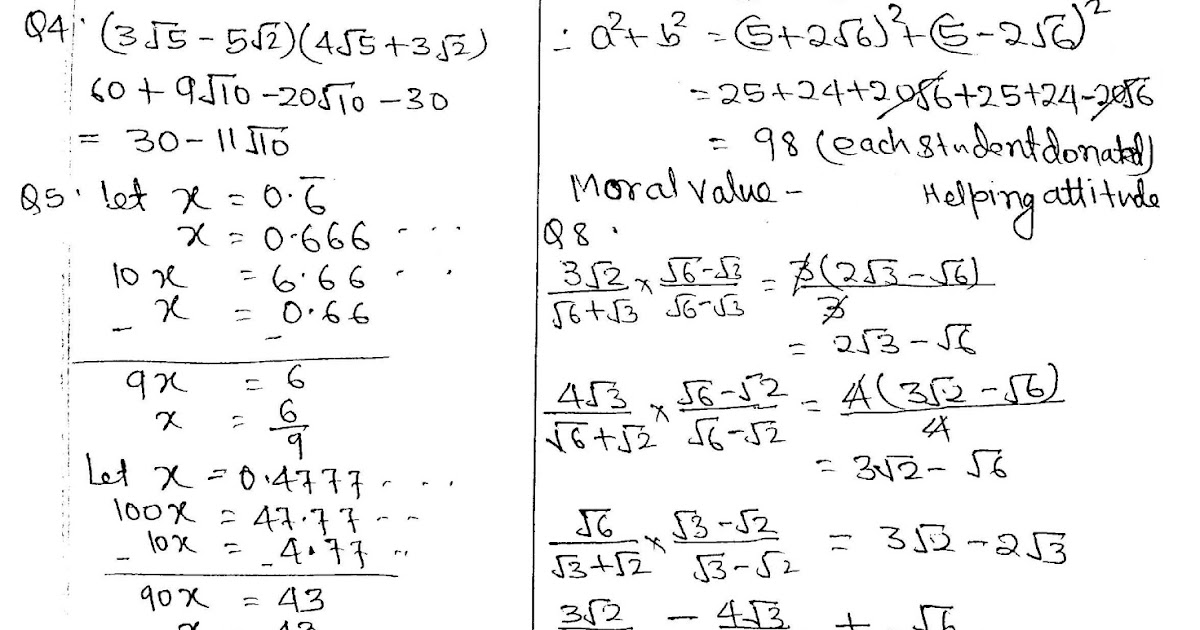 Q4. (3√5 - 5√2)(4√5 + 3√2)
60 + 9√10 - 20√10 - 30
= 30 - 11√10
Q5. let x = 0.6̅
x = 0.666 ...
10x = 6.66 ...
- x = 0.66
-
9x = 6
x = 6/9
Let x = 0.4777 ....
100x = 47.77 --
- 10x = - 4.77 ..
90x = 43
∴ a² + b² = (5+2√6)² + (5-2√6)²
= 25+24+20√6+25+24-20√6
= 98 (each student donated)
Moral value - Helping attitude
Q8.
3√2/(√6+√3) × (√6-√3)/(√6-√3) = 3(2√3-√6)/3
= 2√3 - √6
4√3/(√6+√2) × (√6-√2)/(√6-√2) = 4(3√2-√6)/4
= 3√2 - √6
√6/(√3+√2) × (√3-√2)/(√3-√2) = 3√2 - 2√3
3√2 - 4√3 + √6